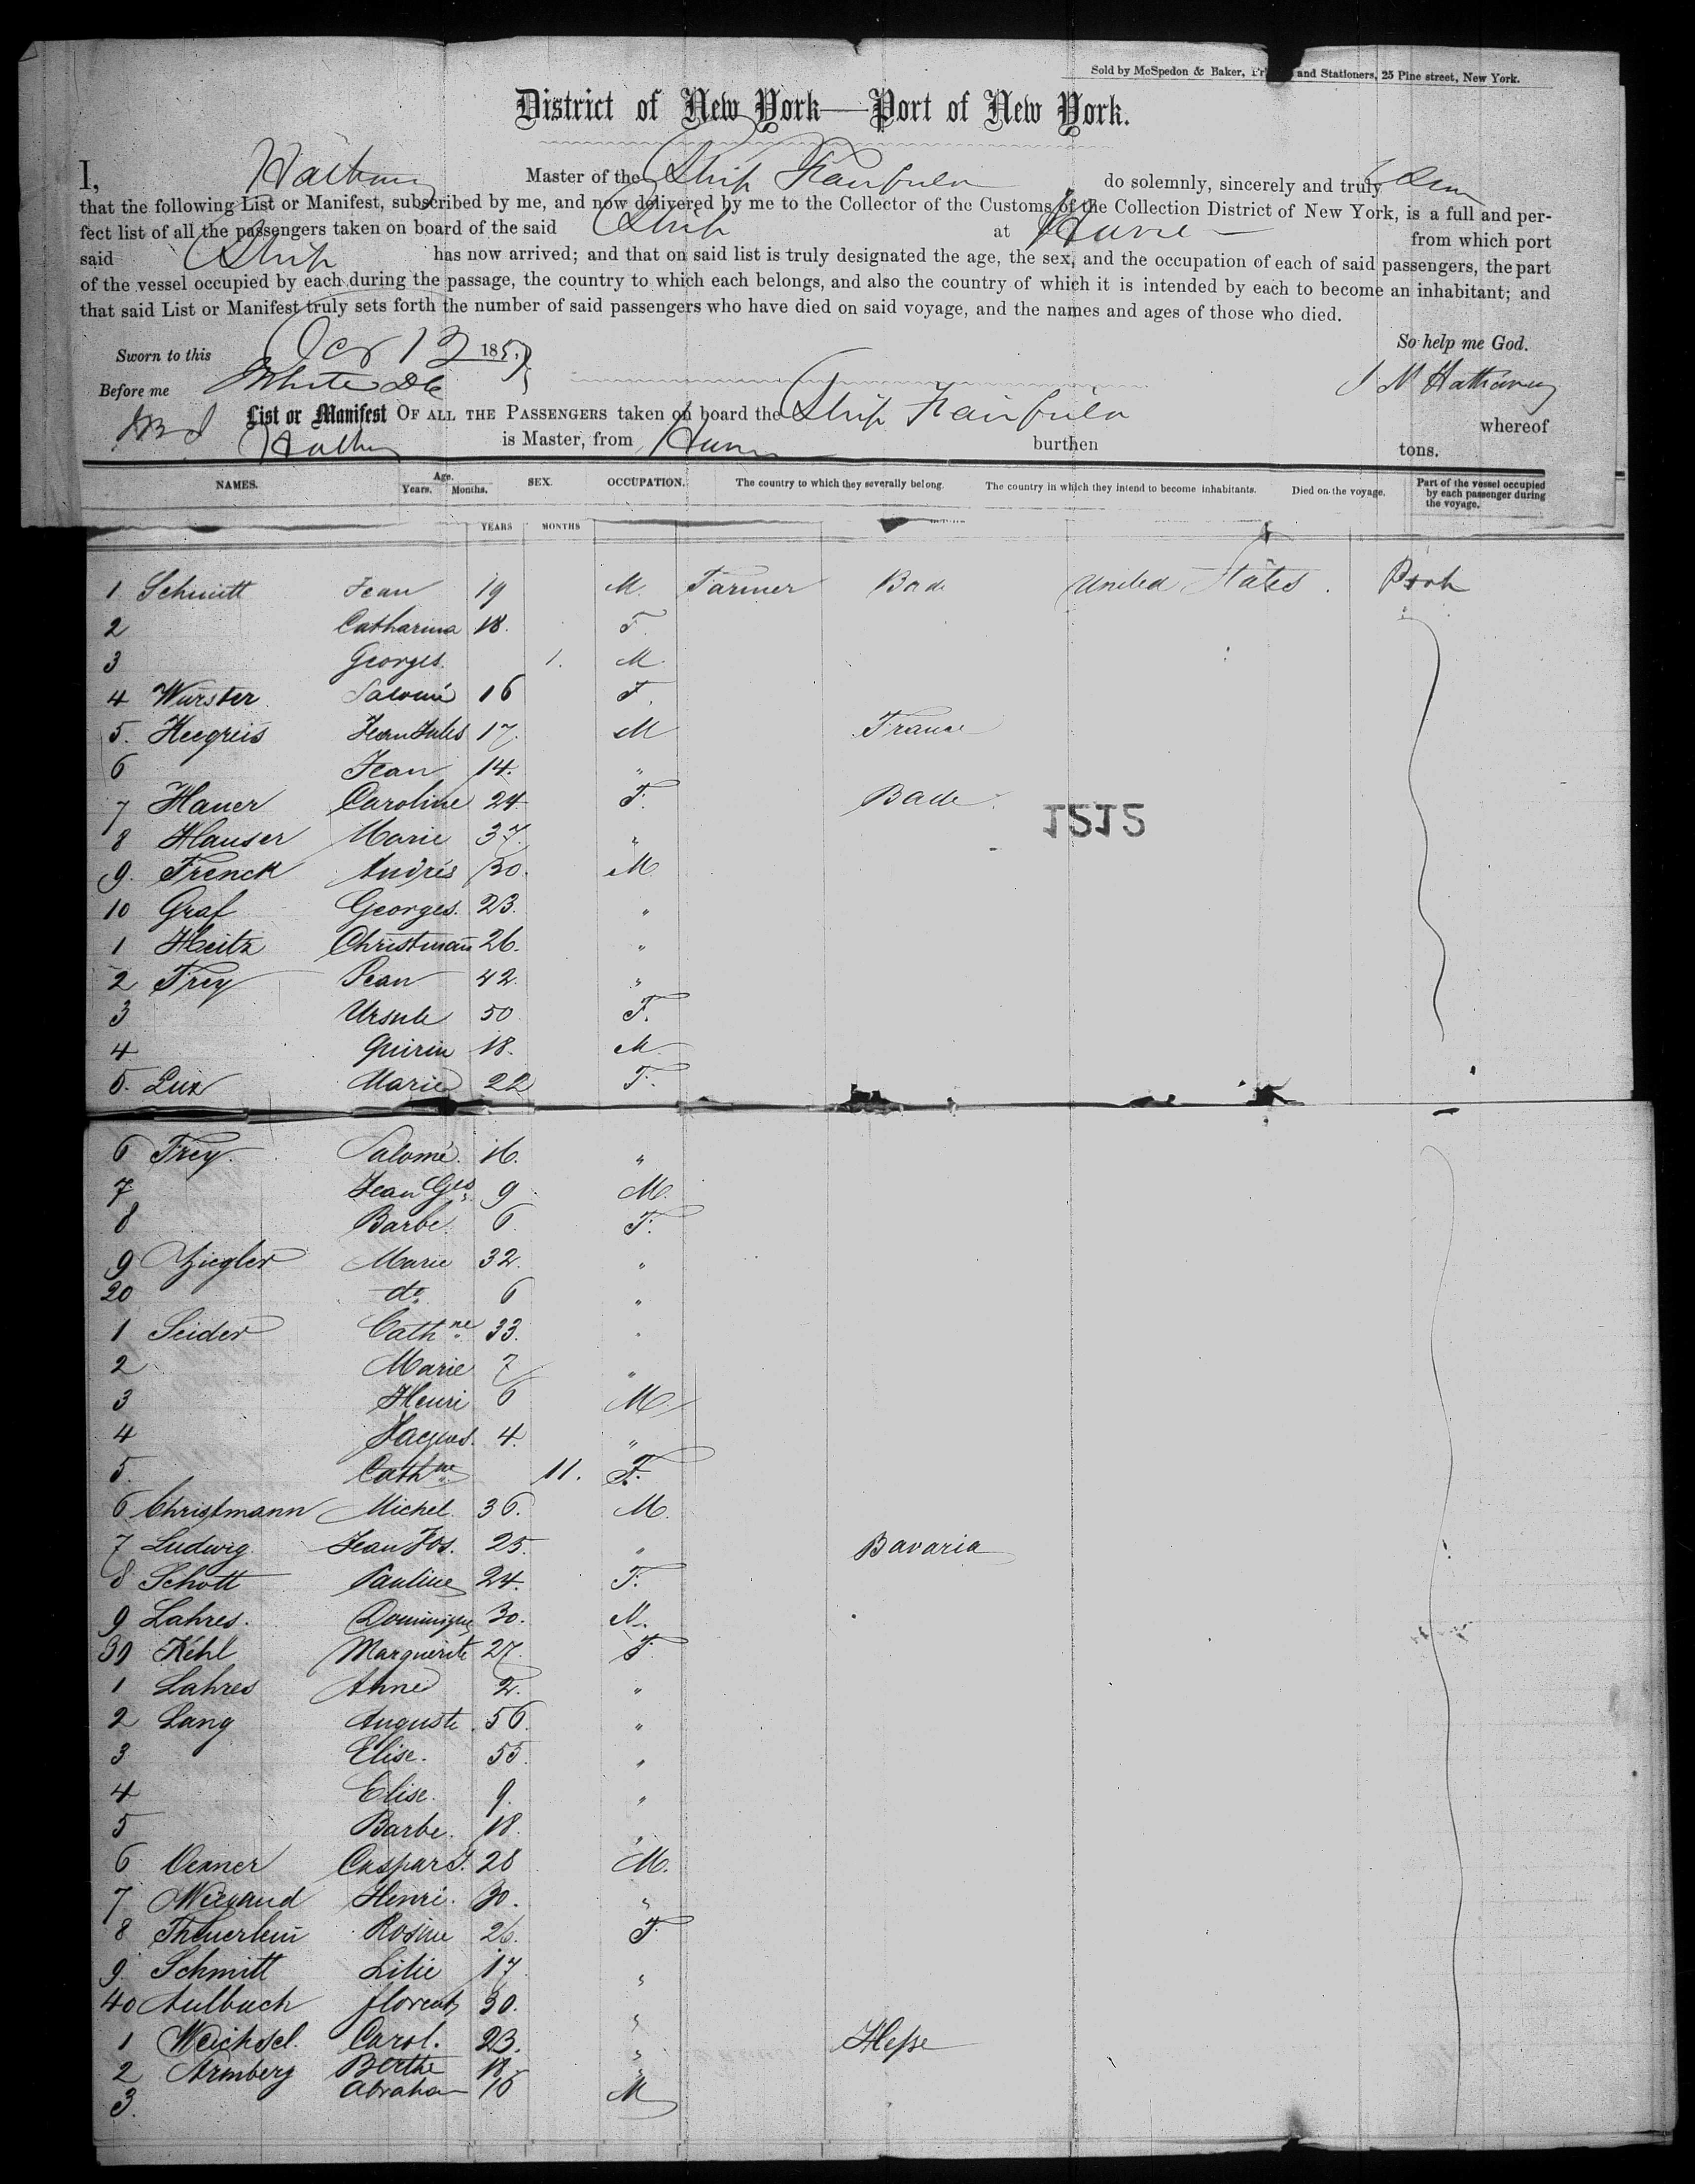 Sold by McSpedon & Baker, Pr and Stationers, 25 Pine street, New York.
District of New York—Port of New York.
I, Hathaway Master of the Ship do solemnly, sincerely and truly
that the following List or Manifest, subscribed by me, and now delivered by me to the Collector of the Customs of the Collection District of New York, is a full and per-
fect list of all the passengers taken on board of the said Ship at Havre from which port
said Ship has now arrived; and that on said list is truly designated the age, the sex, and the occupation of each of said passengers, the part
of the vessel occupied by each during the passage, the country to which each belongs, and also the country of which it is intended by each to become an inhabitant; and
that said List or Manifest truly sets forth the number of said passengers who have died on said voyage, and the names and ages of those who died.
Sworn to this Oct 13 185 So help me God.
Before me White DC Hathaway
List or Manifest OF ALL THE PASSENGERS taken on board the Ship whereof
is Master, from Havre burthen tons.
NAMES. Age. Years. Months. SEX. OCCUPATION. The country to which they severally belong. The country in which they intend to become inhabitants. Died on the voyage. Part of the vessel occupied by each passenger during the voyage.
YEARS MONTHS
1 Schmitt Jean 19 M. Farmer Bade United States.
2 Catharina 18. F.
3 Georges. 1. M.
4 Wurster Salomé 16 F.
5. Heegreis Jean Jules 17. M France
6 Jean 14. "
7 Hauer Caroline 24 F. Bade
J5J5
8 Hauser Marie 37. "
9. Frenck Andrés 30. M.
10 Graf Georges. 23. "
1 Heitz Christmann 26. "
2 Frey Jean 42. "
3 Ursule 50 F.
4 Quirin 18. M.
5. Lux Marie 22 F.
6 Frey. Salomé. 16. "
7 Jean Geo 9 M.
8 Barbe. 6. F.
9 Ziegler Marie 32. "
20 do. 6 "
1 Seider Cathne 33. "
2 Marie 7 "
3 Henri 6 M.
4 Jacques. 4. "
5. Cathne 11. F.
6 Christmann Michel 36. M.
7 Ludwig. Jean Jos. 25. " Bavaria
8 Schott Pauline 24. F.
9 Lahres. Dominique 30. M.
30 Kehl Marguerite 27. F.
1 Lahres Anne 2. "
2 Lang Auguste. 56. "
3 Elise. 55. "
4 Elise. 9. "
5 Barbe. 18. "
6 Caspard. 28 M.
7 Henri. 30. "
8 Theuerlein Rosine 26. F.
9. Schmitt Lilie 17 "
40 Aulbach florent 30. "
1 Weichsel. Carol. 23. " Hesse
2 Armberg Berthe 18 "
3. Abraham 16 M